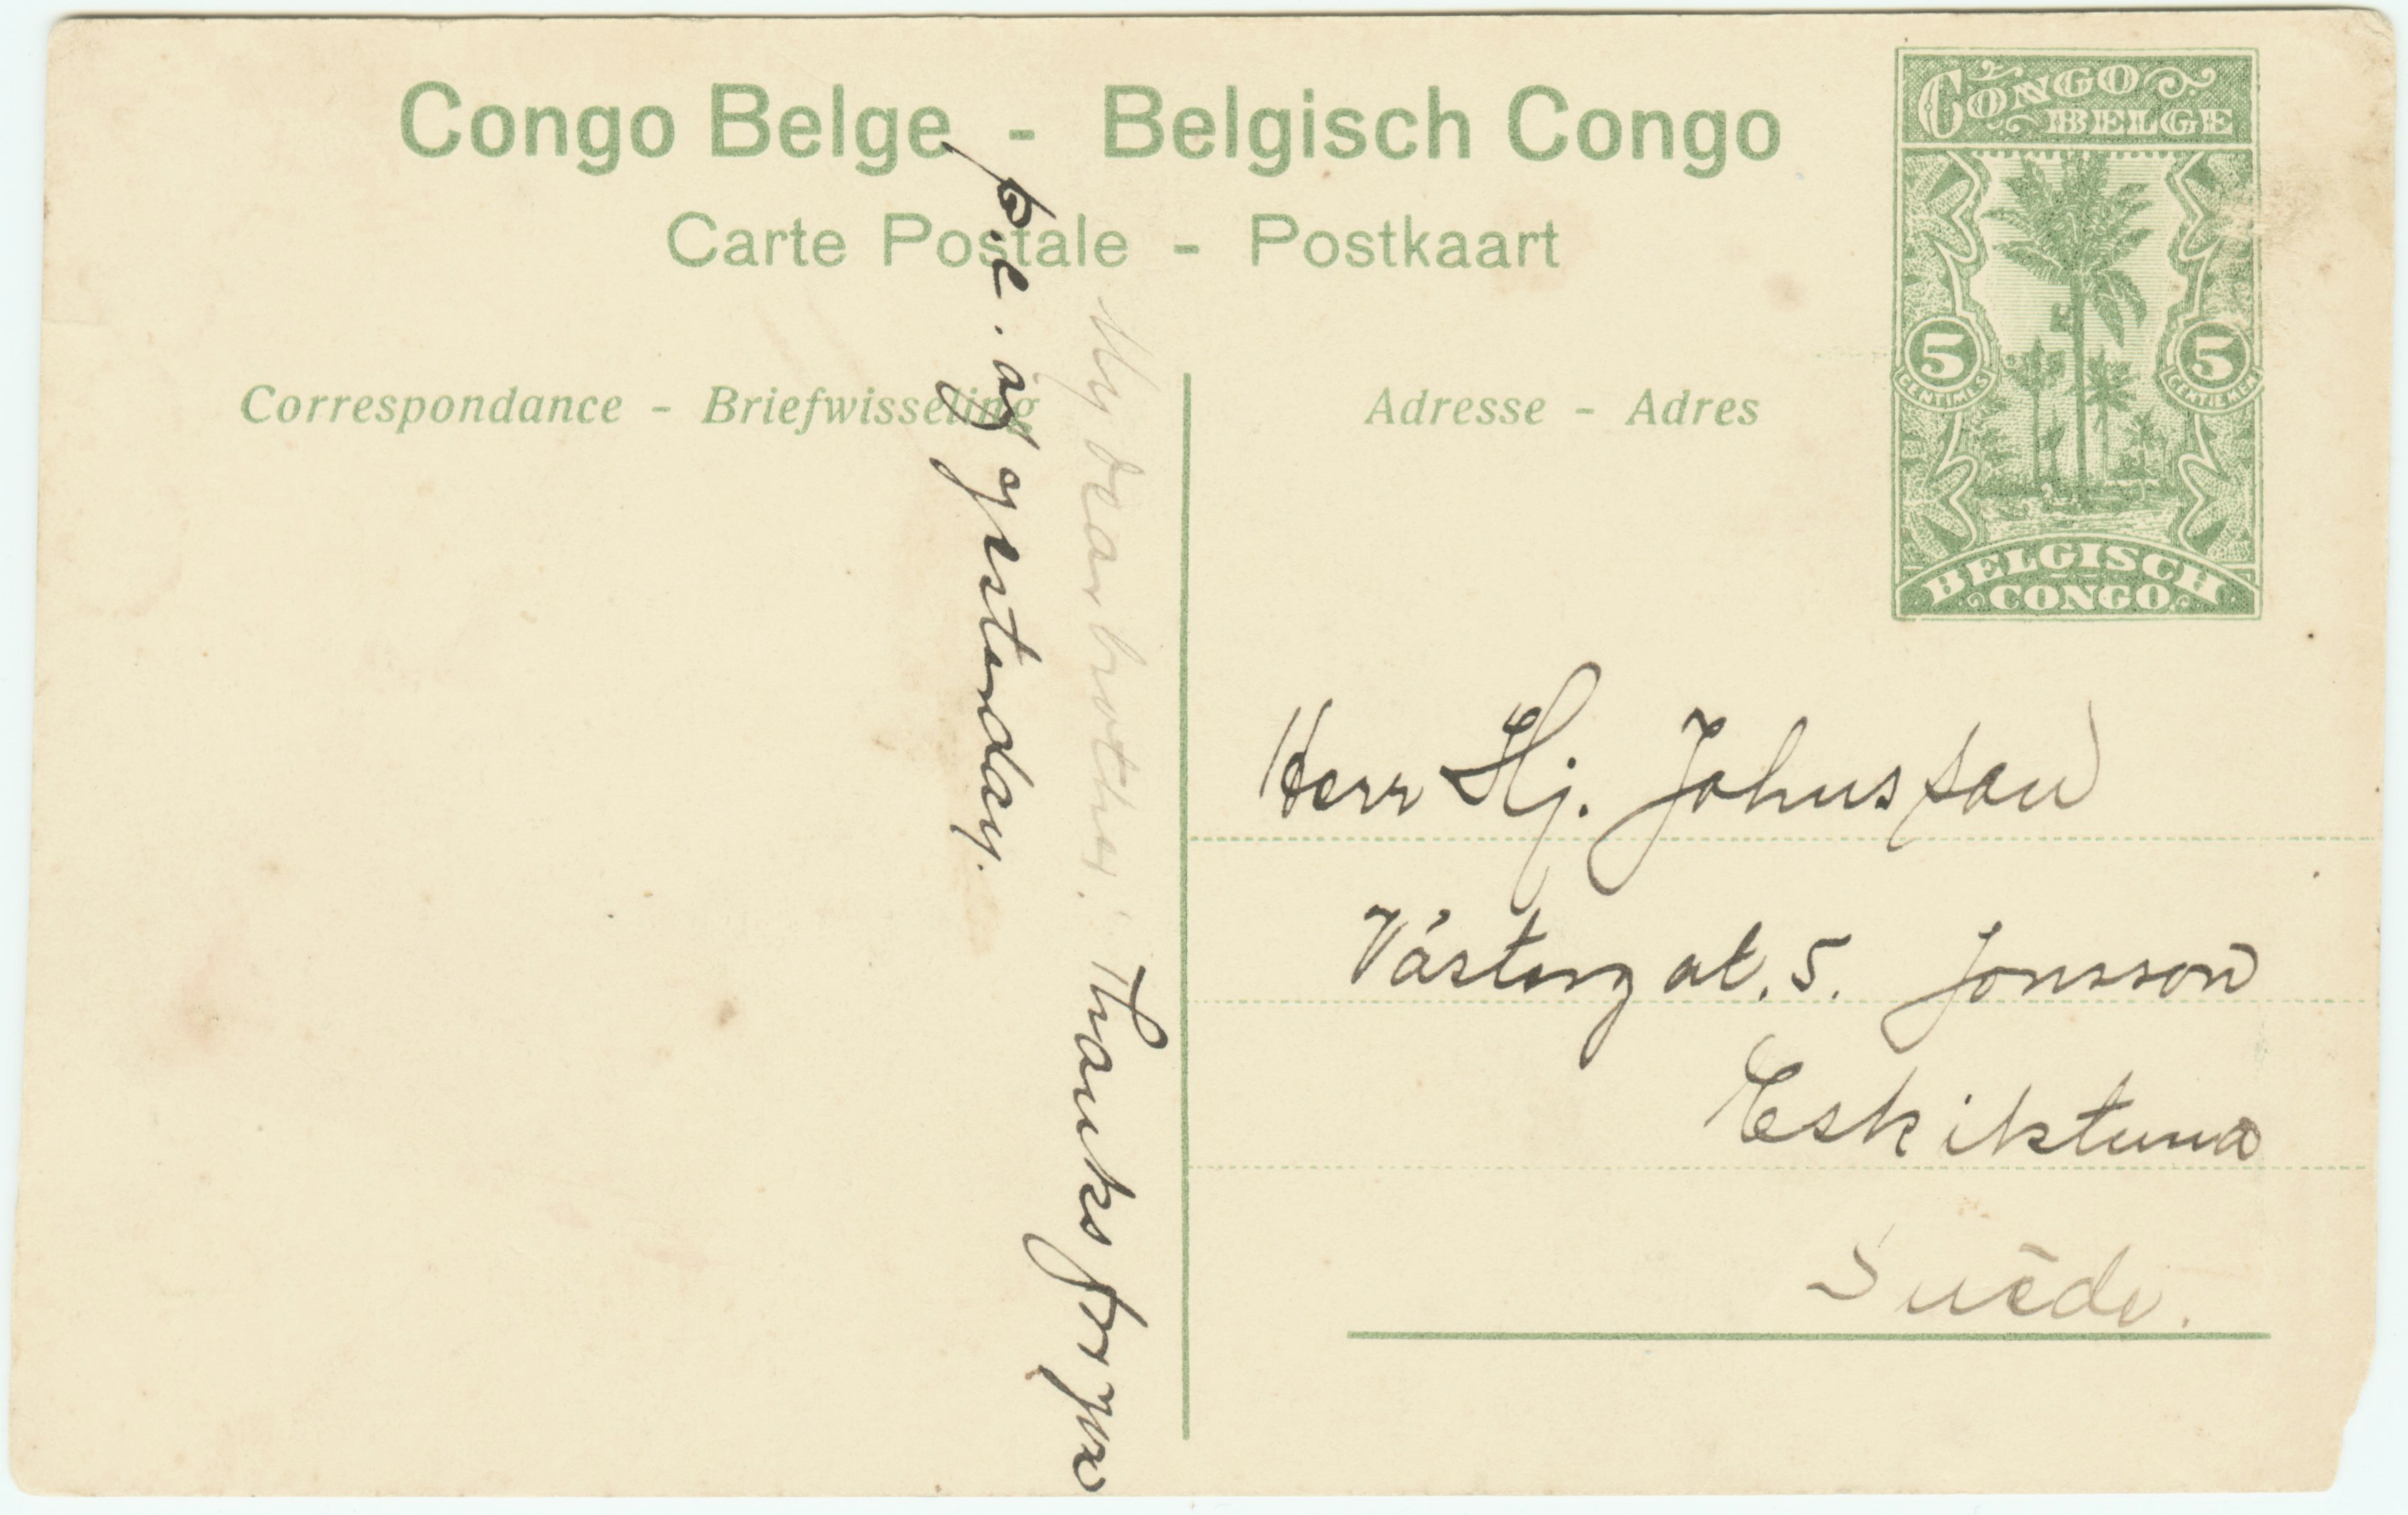 Congo Belge - Belgisch Congo
Carte Postale - Postkaart
Correspondance - Briefwisseling
Adresse - Adres
CONGO
BELGE
5 5
CENTIMES CENTIEMEN
BELGISCH
CONGO
My dear brother! Thanks for yr
p.c. of yesterday.
Herr Hj. Johnsson
Västergat. 5. Jonsson
Eskilstuna
Suède.